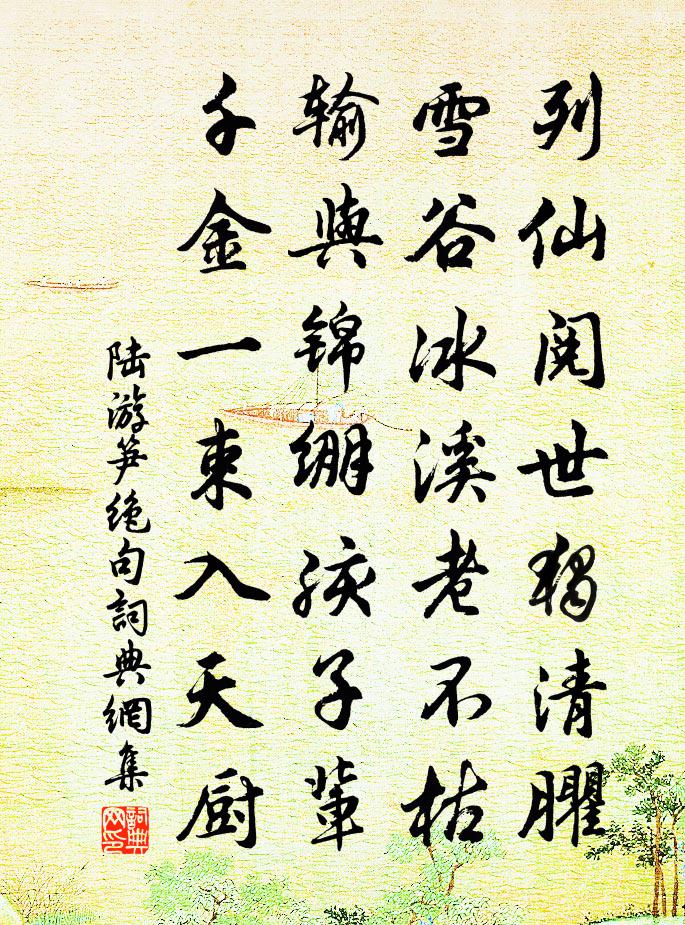 列仙閱世獨清臞
雪谷冰溪老不枯
輸與錦繃孩子輩
千金一束入天厨
陆游笋绝句詞典網集
詞典
网印